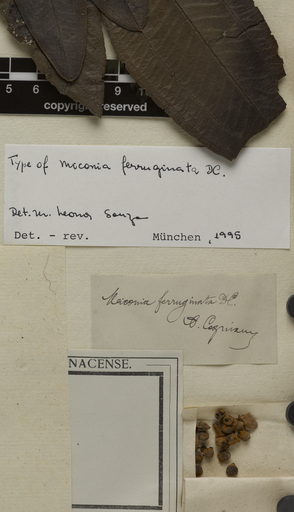 5 6 9
copyright reserved
Type of Miconia ferruginata DC.
Det. M. Leonor Souza
Det. - rev. München, 1995
Miconia ferruginata DC.
A. Cogniaux
NACENSE.